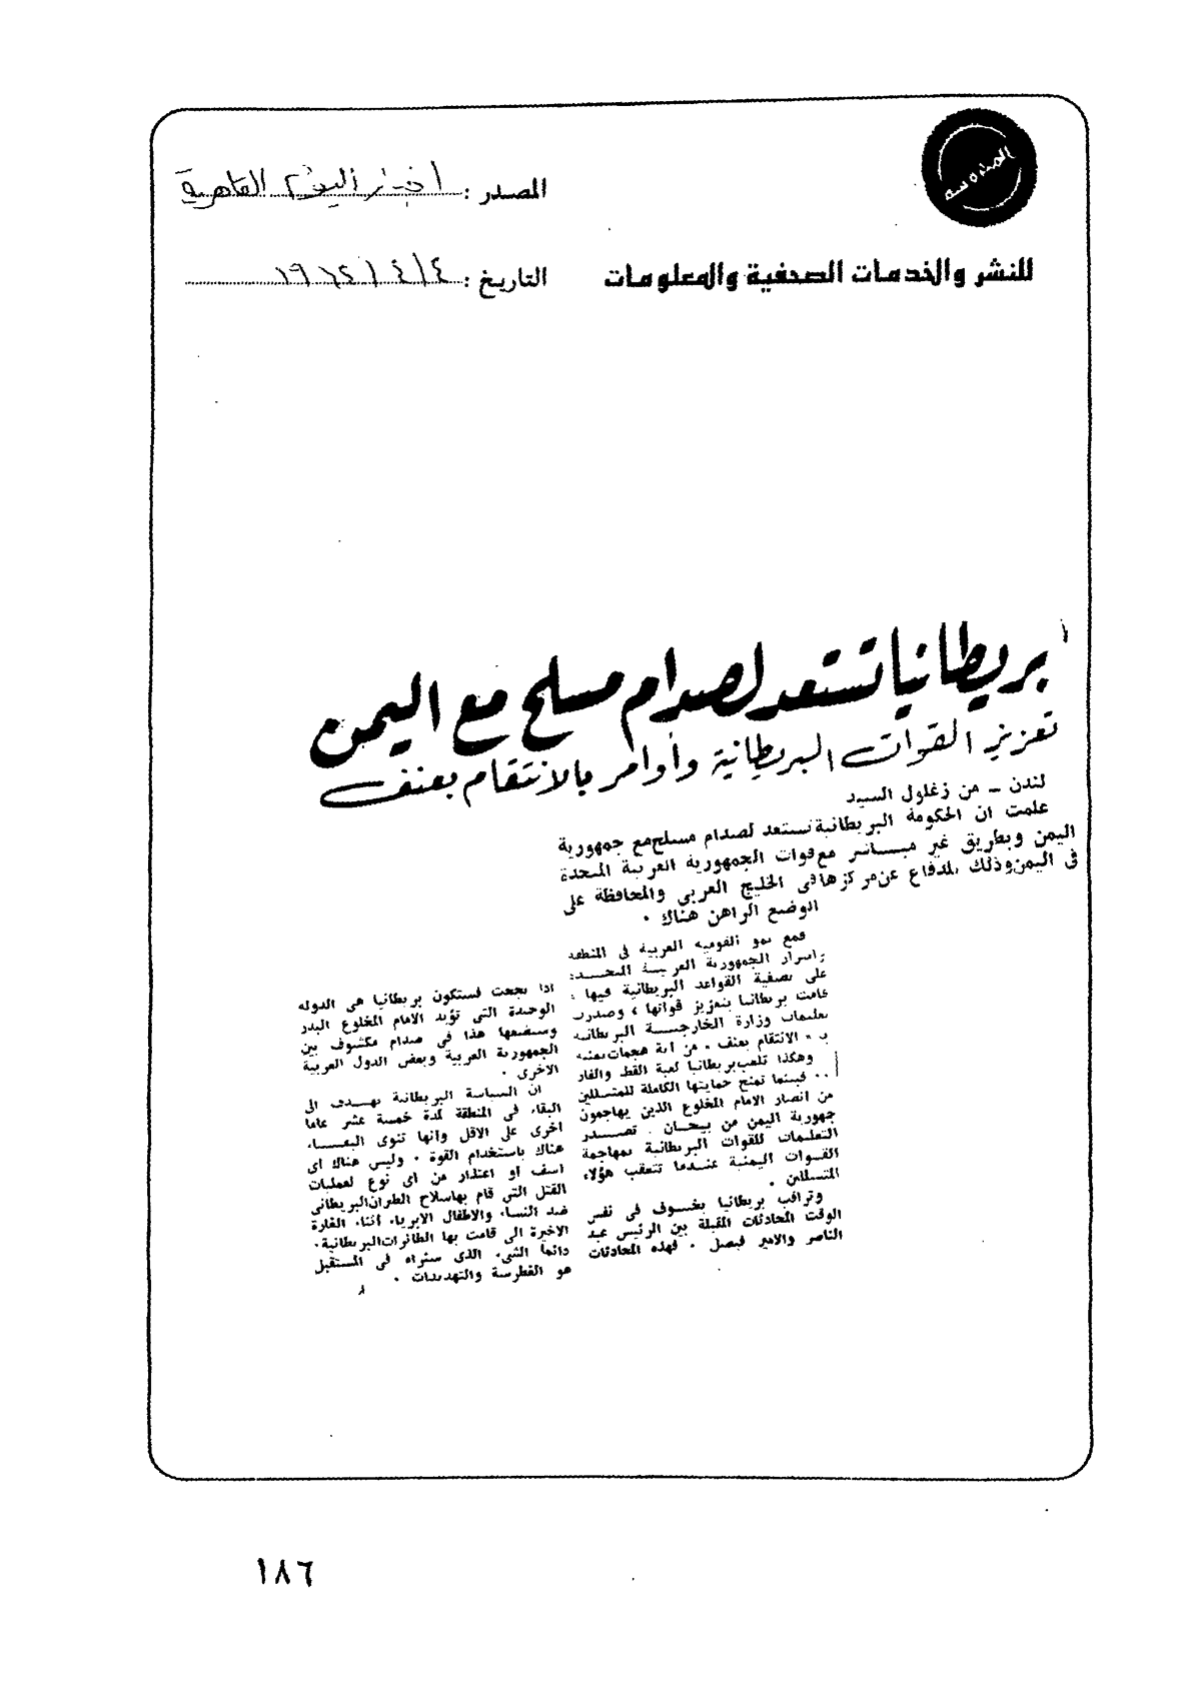 المصدر : اخبار اليوم القاهرية
للنشر والخدمات الصحفية والمعلومات
التاريخ : ٤/٤/١٩٦٤
بريطانيا تستعد لصدام مسلح مع اليمن
تعزيز القوات البريطانية وأوامر بالانتقام بعنف
لندن - من زغلول السيد
علمت ان الحكومة البريطانية تستعد لصدام مسلح مع جمهورية
اليمن وبطريق غير مباشر مع قوات الجمهورية العربية المتحدة
فى اليمن وذلك للدفاع عن مركزها فى الخليج العربى والمحافظة على
الوضع الراهن هناك .
فمع نمو القومية العربية فى المنطقة
واصرار الجمهورية العربية المتحدة
على تصفية القواعد البريطانية فيها ،
قامت بريطانيا بتعزيز قواتها ، وصدرت
تعليمات وزارة الخارجية البريطانية
بـ « الانتقام بعنف » من اية هجمات يمنية
وهكذا تلعب بريطانيا لعبة القط والفار
.. فبينما تمنح حمايتها الكاملة للمتسللين
من انصار الامام المخلوع الذين يهاجمون
جمهورية اليمن من بيحان . تصدر
التعليمات للقوات البريطانية بمهاجمة
القوات اليمنية عندما تتعقب هؤلاء
المتسللين .
وتراقب بريطانيا بخوف فى نفس
الوقت المحادثات المقبلة بين الرئيس عبد
الناصر والامير فيصل . فهذه المحادثات
اذا نجحت فستكون بريطانيا هى الدولة
الوحيدة التى تؤيد الامام المخلوع البدر
وسيضعها هذا فى صدام مكشوف بين
الجمهورية العربية وبعض الدول العربية
الاخرى .
ان السياسة البريطانية تهدف الى
البقاء فى المنطقة لمدة خمسة عشر عاما
اخرى على الاقل وانها تنوى البقاء
هناك باستخدام القوة . وليس هناك اى
اسف او اعتذار من اى نوع لعمليات
القتل التى قام بها سلاح الطيران البريطانى
ضد النساء والاطفال الابرياء أثناء الغارة
الاخيرة التى قامت بها الطائرات البريطانية .
دائما الشىء الذى ستراه فى المستقبل
هو الغطرسة والتهديدات .
١٨٦